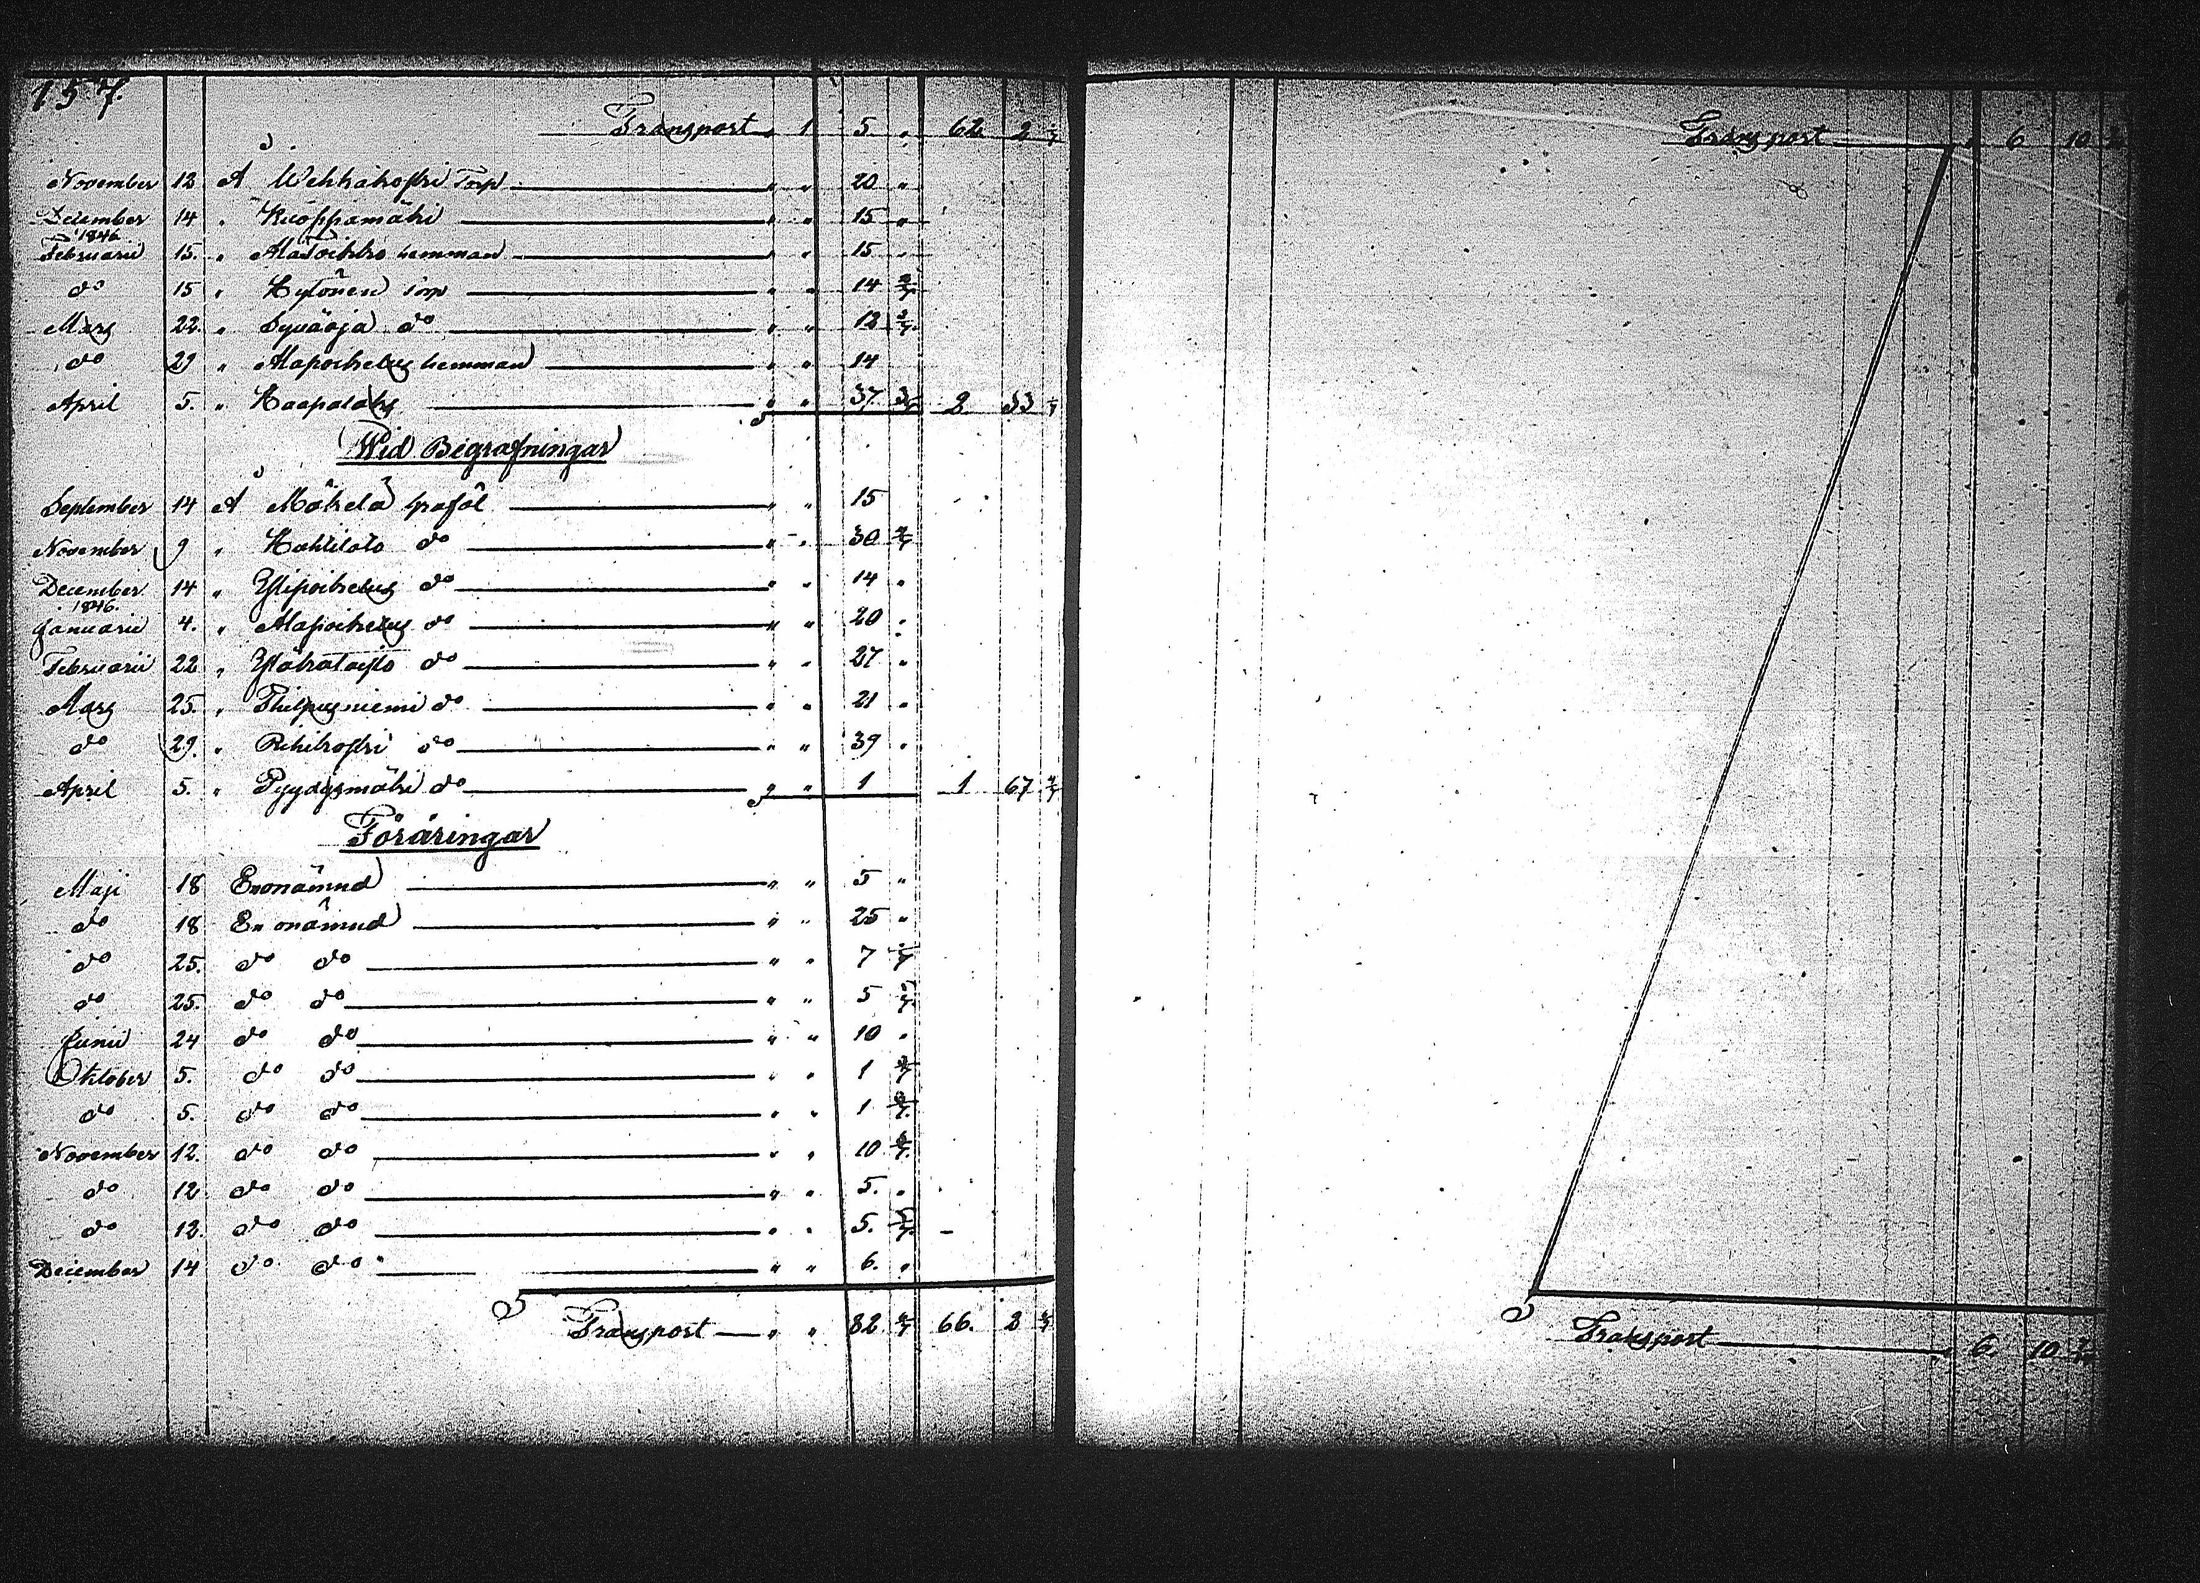 157.
Transport " 1 5. " 62. 2
November 12 Å Wehkakoski Torp " " 20 "
December 14 " Kuoppamäki " " 15 "
1846
Februarii 15. " hemman " " 15 "
do 15 " Hytönen Torp " " 14
Mars 22. " Syväoja do " " 12
do 29 " Alapoikelus hemman " " 14
April 5. " Haapalaks " " 37 2 33
Wid Begrafningar
September 14 Å Mäkelä graföl " " 15
November 9 " do " " 30
December 14 " Ylipoikelus do " " 14 "
1846.
Januarii 4. " Alapoikelus do " " 20 "
Februarii 22 " do " " 27 "
Mars 25. " Philpusniemi do " " 21 "
do 29. " do " " 39 "
April 5. " Pyydysmäki do " " 1 1 67
Föräringar
Maji 18 Enonämnd " " 5 "
do 18 En onämnd " " 25 "
do 25. do do " " 7
do 25. do do " " 5
Junii 24 do do " " 10 "
Oktober 5. do do " " 1
do 5. do do " " 1
November 12. do do " " 10
do 12 do do " " 5. "
do 12. do do " " 5.
December 14 do do " " 6. "
Transport " " 82 66. 2
Transport 6 10
Transport 6. 10